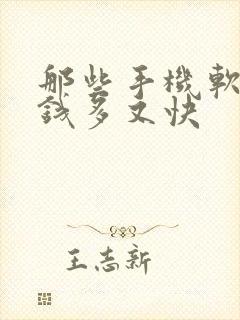 那些手機軟
錢多又快
王志新